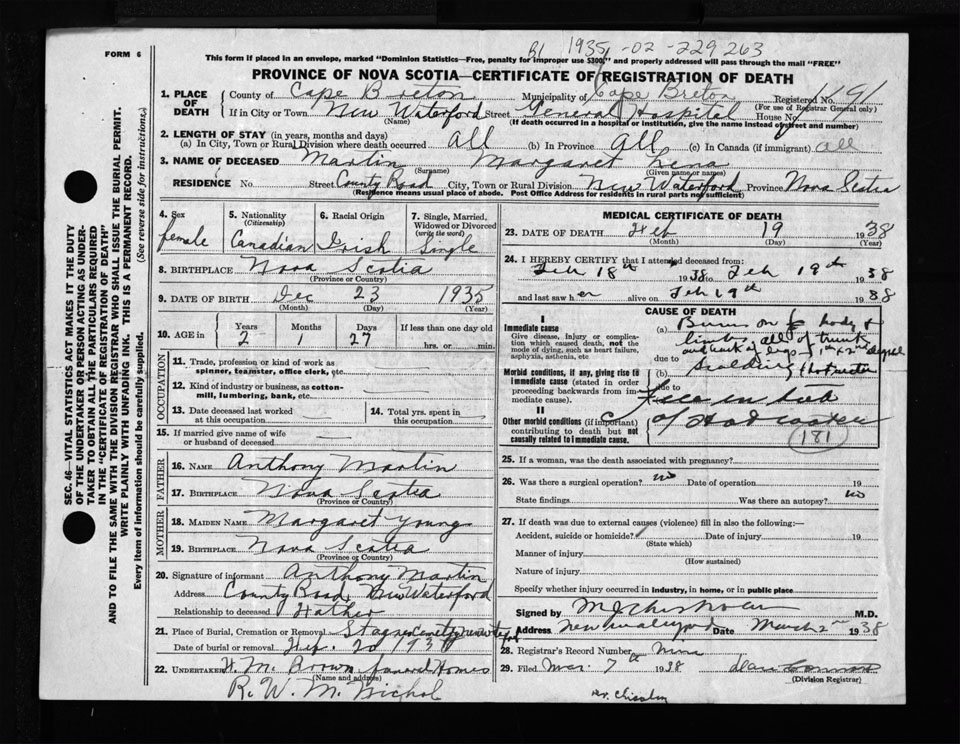 FORM 6
B1 1935-02-229263
This form if placed in an envelope, marked "Dominion Statistics—Free, penalty for improper use $300," and properly addressed will pass through the mail "FREE"
PROVINCE OF NOVA SCOTIA—CERTIFICATE OF REGISTRATION OF DEATH
1. PLACE OF DEATH County of Cape Breton Municipality of Cape Breton Registered No. 1191
(For use of Registrar General only)
If in City or Town New Waterford Street General Hospital House No.
(Name) (If death occurred in a hospital or institution, give the name instead of street and number)
2. LENGTH OF STAY (in years, months and days)
(a) In City, Town or Rural Division where death occurred All (b) In Province All (c) In Canada (if immigrant) All
3. NAME OF DECEASED Martin Margaret Lena
(Surname) (Given name or names)
RESIDENCE No. Street County Road City, Town or Rural Division New Waterford Province Nova Scotia
(Residence means usual place of abode. Post Office Address for residents in rural parts not sufficient)
4. Sex female
5. Nationality (Citizenship) Canadian
6. Racial Origin Irish
7. Single, Married, Widowed or Divorced (write the word) Single
8. BIRTHPLACE Nova Scotia
(Province or Country)
9. DATE OF BIRTH Dec 23 1935
(Month) (Day) (Year)
10. AGE in Years 2 Months 1 Days 27 If less than one day old hrs. or min.
OCCUPATION
11. Trade, profession or kind of work as spinner, teamster, office clerk, etc.
12. Kind of industry or business, as cotton-mill, lumbering, bank, etc.
13. Date deceased last worked at this occupation
14. Total yrs. spent in this occupation
15. If married give name of wife or husband of deceased
FATHER
16. NAME Anthony Martin
17. BIRTHPLACE Nova Scotia
(Province or Country)
MOTHER
18. MAIDEN NAME Margaret Young
19. BIRTHPLACE Nova Scotia
(Province or Country)
20. Signature of informant Anthony Martin
Address County Road, New Waterford
Relationship to deceased Father
21. Place of Burial, Cremation or Removal
Date of burial or removal
22. UNDERTAKER H. M. Brown funeral Homes
(Name and address)
R. W. M. Nichol
MEDICAL CERTIFICATE OF DEATH
23. DATE OF DEATH Feb 19 1938
(Month) (Day) (Year)
24. I HEREBY CERTIFY that I attended deceased from:
Feb 18th 1938 to Feb 19th 1938
and last saw her alive on Feb 19th 1938
CAUSE OF DEATH
I
Immediate cause
Give disease, injury or complication which caused death, not the mode of dying, such as heart failure, asphyxia, asthenia, etc
(a) Burns on body &
limbs, all of trunk
due to
scalding hot water
Morbid conditions, if any, giving rise to immediate cause (stated in order proceeding backwards from immediate cause).
due to
in tub
II
Other morbid conditions (if important) contributing to death but not causally related to immediate cause.
of Hot water
181
25. If a woman, was the death associated with pregnancy?
26. Was there a surgical operation? no Date of operation 19
State findings Was there an autopsy? no
27. If death was due to external causes (violence) fill in also the following:—
Accident, suicide or homicide? Date of injury 19
(State which)
Manner of injury
(How sustained)
Nature of injury
Specify whether injury occurred in Industry, in home, or in public place
Signed by M.D.
Address New Waterford Date March 2nd 1938
28. Registrar's Record Number
29. Filed Mar. 7th 1938
(Division Registrar)
SEC. 46—VITAL STATISTICS ACT MAKES IT THE DUTY
OF THE UNDERTAKER OR PERSON ACTING AS UNDER-
TAKER TO OBTAIN ALL THE PARTICULARS REQUIRED
IN THE "CERTIFICATE OF REGISTRATION OF DEATH"
AND TO FILE THE SAME WITH THE DIVISION REGISTRAR WHO SHALL ISSUE THE BURIAL PERMIT.
WRITE PLAINLY WITH UNFADING INK. THIS IS A PERMANENT RECORD.
Every item of information should be carefully supplied. (See reverse side for instructions.)